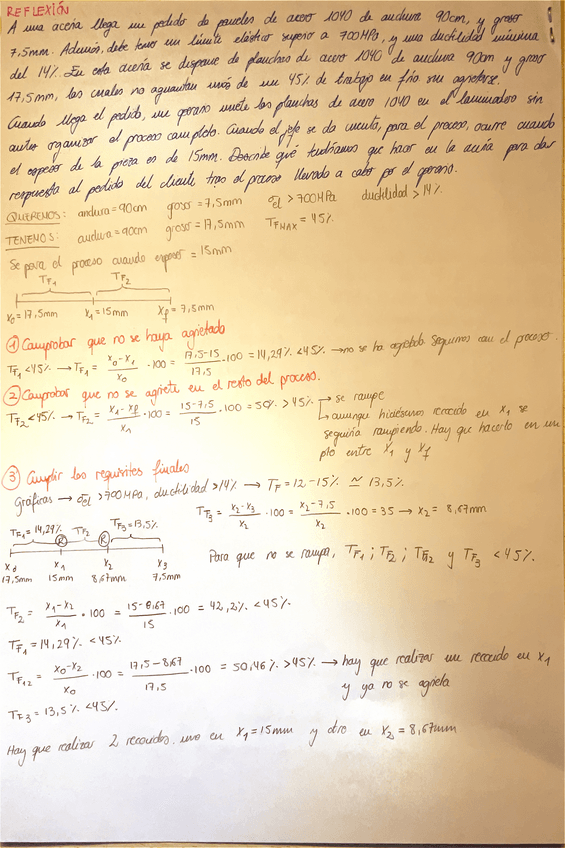 REFLEXIÓN
A una acería llega un pedido de paneles de acero 1040 de anchura 90cm, y grosor
7,5mm. Además, debe tener un límite elástico superior a 700MPa, y una ductilidad mínima
del 14%. En esta acería se dispone de planchas de acero 1040 de anchura 90cm y grosor
17,5mm, las cuales no aguantan más de un 45% de trabajo en frío sin agrietarse.
Cuando llega el pedido, un operario mete las planchas de acero 1040 en el laminador sin
antes organizar el proceso completo. Cuando el jefe se da cuenta, para el proceso, ocurre cuando
el espesor de la pieza es de 15mm. Describe qué tendríamos que hacer en la acería para dar
respuesta al pedido del cliente tras el proceso llevado a cabo por el operario.
QUEREMOS: anchura = 90cm grosor = 7,5mm σel > 700MPa ductilidad > 14%
TENEMOS: anchura = 90cm grosor = 17,5mm TF MAX = 45%
Se para el proceso cuando espesor = 15mm
TF1 TF2
x0 = 17,5mm x1 = 15mm xf = 7,5mm
① Comprobar que no se haya agrietado
TF1 < 45% → TF1 = (x0 - x1)/x0 · 100 = (17,5 - 15)/17,5 · 100 = 14,29% < 45% → no se ha agrietado. Seguimos con el proceso.
② Comprobar que no se agriete en el resto del proceso.
TF2 < 45% → TF2 = (x1 - xf)/x1 · 100 = (15 - 7,5)/15 · 100 = 50% > 45% → se rompe
↳ aunque hiciésemos recocido en x1 se
seguiría rompiendo. Hay que hacerlo en un
pto entre x1 y xf
③ Cumplir los requisitos finales
Gráficas → σel > 700MPa, ductilidad > 14% → TF = 12 - 15% ≃ 13,5%.
TF3 = (x2 - x3)/x2 · 100 = (x2 - 7,5)/x2 · 100 = 35 → x2 = 8,67mm
TF1 = 14,29% TF2 TF3 = 13,5%
R R
x0 x1 x2 x3
17,5mm 15mm 8,67mm 7,5mm
Para que no se rompa, TF1 ; TF2 ; TF12 y TF3 < 45%.
TF2 = (x1 - x2)/x1 · 100 = (15 - 8,67)/15 · 100 = 42,2% < 45%
TF1 = 14,29% < 45%
TF12 = (x0 - x2)/x0 · 100 = (17,5 - 8,67)/17,5 · 100 = 50,46% > 45% → hay que realizar un recocido en x1
y ya no se agrieta
TF3 = 13,5% < 45%.
Hay que realizar 2 recocidos, uno en x1 = 15mm y otro en x2 = 8,67mm